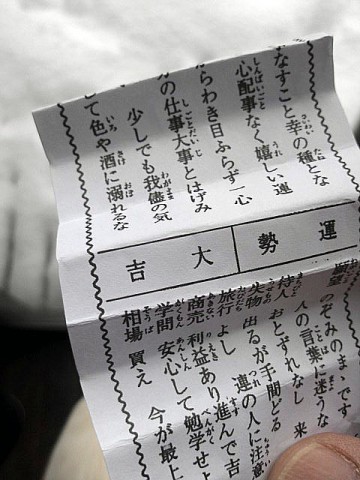 なすこと幸の種とな
心配事なく嬉しい運
らわき目ふらず一心
分の仕事大事とはげみ
少しでも我儘の気
して色や酒に溺れるな
運勢 大吉
願望 のぞみのまゝです
人の言葉に迷うな
待人 おとずれなし 来
失物 出るが手間どる
旅行 よし 連の人に注意
商売 利益あり進んで吉
学問 安心して勉学せよ
相場 買え 今が最上